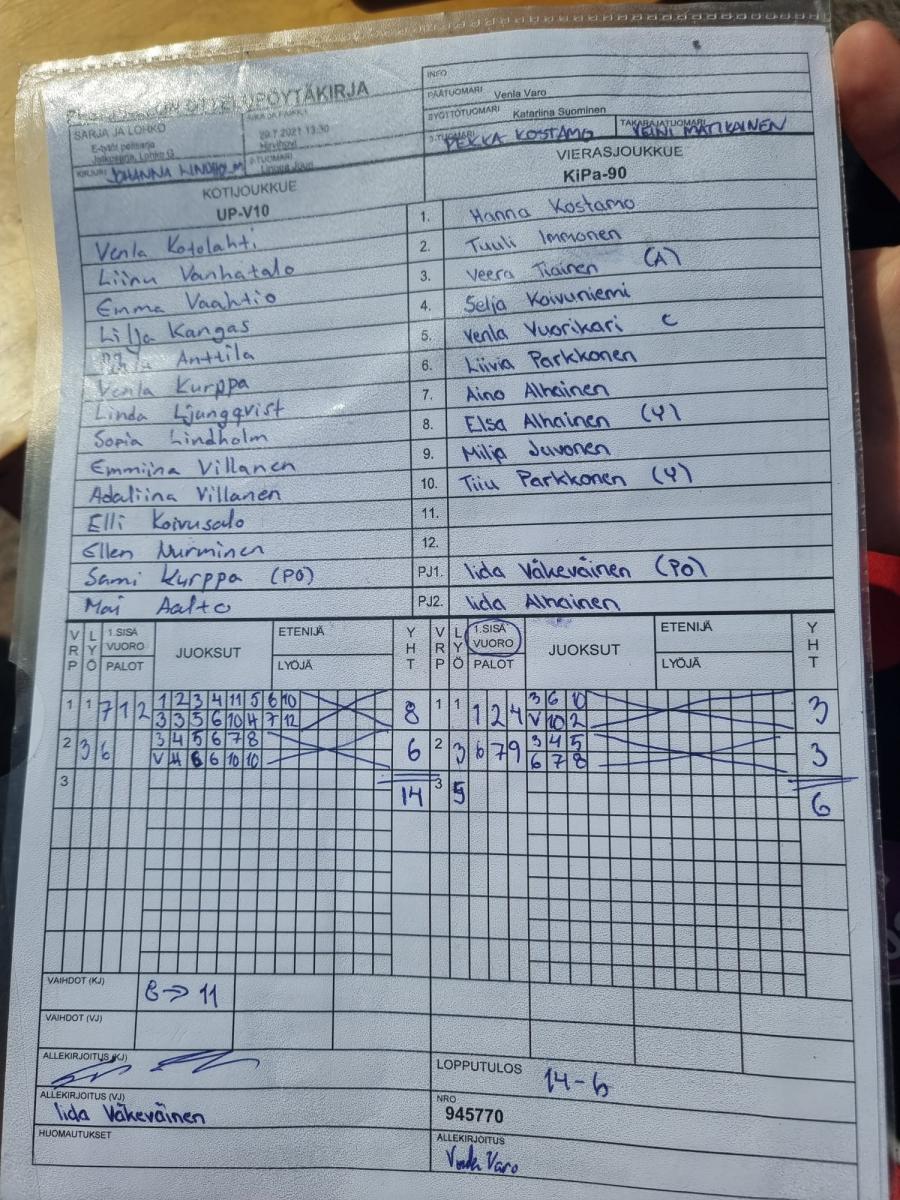 OTTELUPÖYTÄKIRJA
INFO
SARJA JA LOHKO
PÄÄTUOMARI Venla Varo
E-tytöt pelisarja
29.7.2021 13:30
SYÖTTÖTUOMARI Katariina Suominen
Jatkosarja, Lohko G
PEKKA KOSTAMO TAKARAJATUOMARI VEINI MATIKAINEN
KIRJURI JOHANNA LINDHOLM 2-TUOMARI
KOTIJOUKKUE VIERASJOUKKUE
UP-V10 KiPa-90
Venla Kotolahti 1. Hanna Kostamo
Liinu Vanhatalo 2. Tuuli Immonen
Emma Vaahtio 3. Veera Tiainen (A)
Lilja Kangas 4. Selja Koivuniemi
Anttila 5. Venla Vuorikari C
Venla Kurppa 6. Liivia Parkkonen
Linda Ljungqvist 7. Aino Alhainen
Sopia Lindholm 8. Elsa Alhainen (Y)
Emmiina Villanen 9. Milja Juvonen
Adaliina Villanen 10. Tiiu Parkkonen (Y)
Elli Koivusalo 11.
Ellen Nurminen 12.
Sami Kurppa (PO) PJ1. Iida Väkeväinen (PO)
Mai Aalto PJ2. Iida Alhainen
VRP LYÖ 1.SISÄ VUORO PALOT JUOKSUT ETENIJÄ LYÖJÄ YHT VRP LYÖ 1.SISÄ VUORO PALOT JUOKSUT ETENIJÄ LYÖJÄ YHT
1 1 7 1 2 1 2 3 4 11 5 6 10 8 1 1 1 2 4 3 6 10 3
3 3 5 6 10 H 7 12 V 10 2
2 3 6 3 4 5 6 7 8 6 2 3 6 7 9 3 4 5 3
V H 6 6 10 10 6 7 8
3 14 3 5 6
VAIHDOT (KJ) 8→11
VAIHDOT (VJ)
ALLEKIRJOITUS (KJ) LOPPUTULOS 14-6
ALLEKIRJOITUS (VJ) NRO
Iida Väkeväinen 945770
HUOMAUTUKSET ALLEKIRJOITUS
Venla Varo